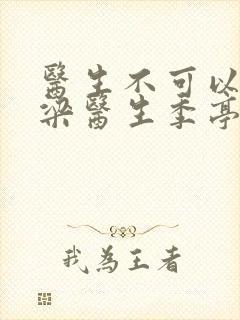 醫生不可以
梁醫生季亭
我為王者